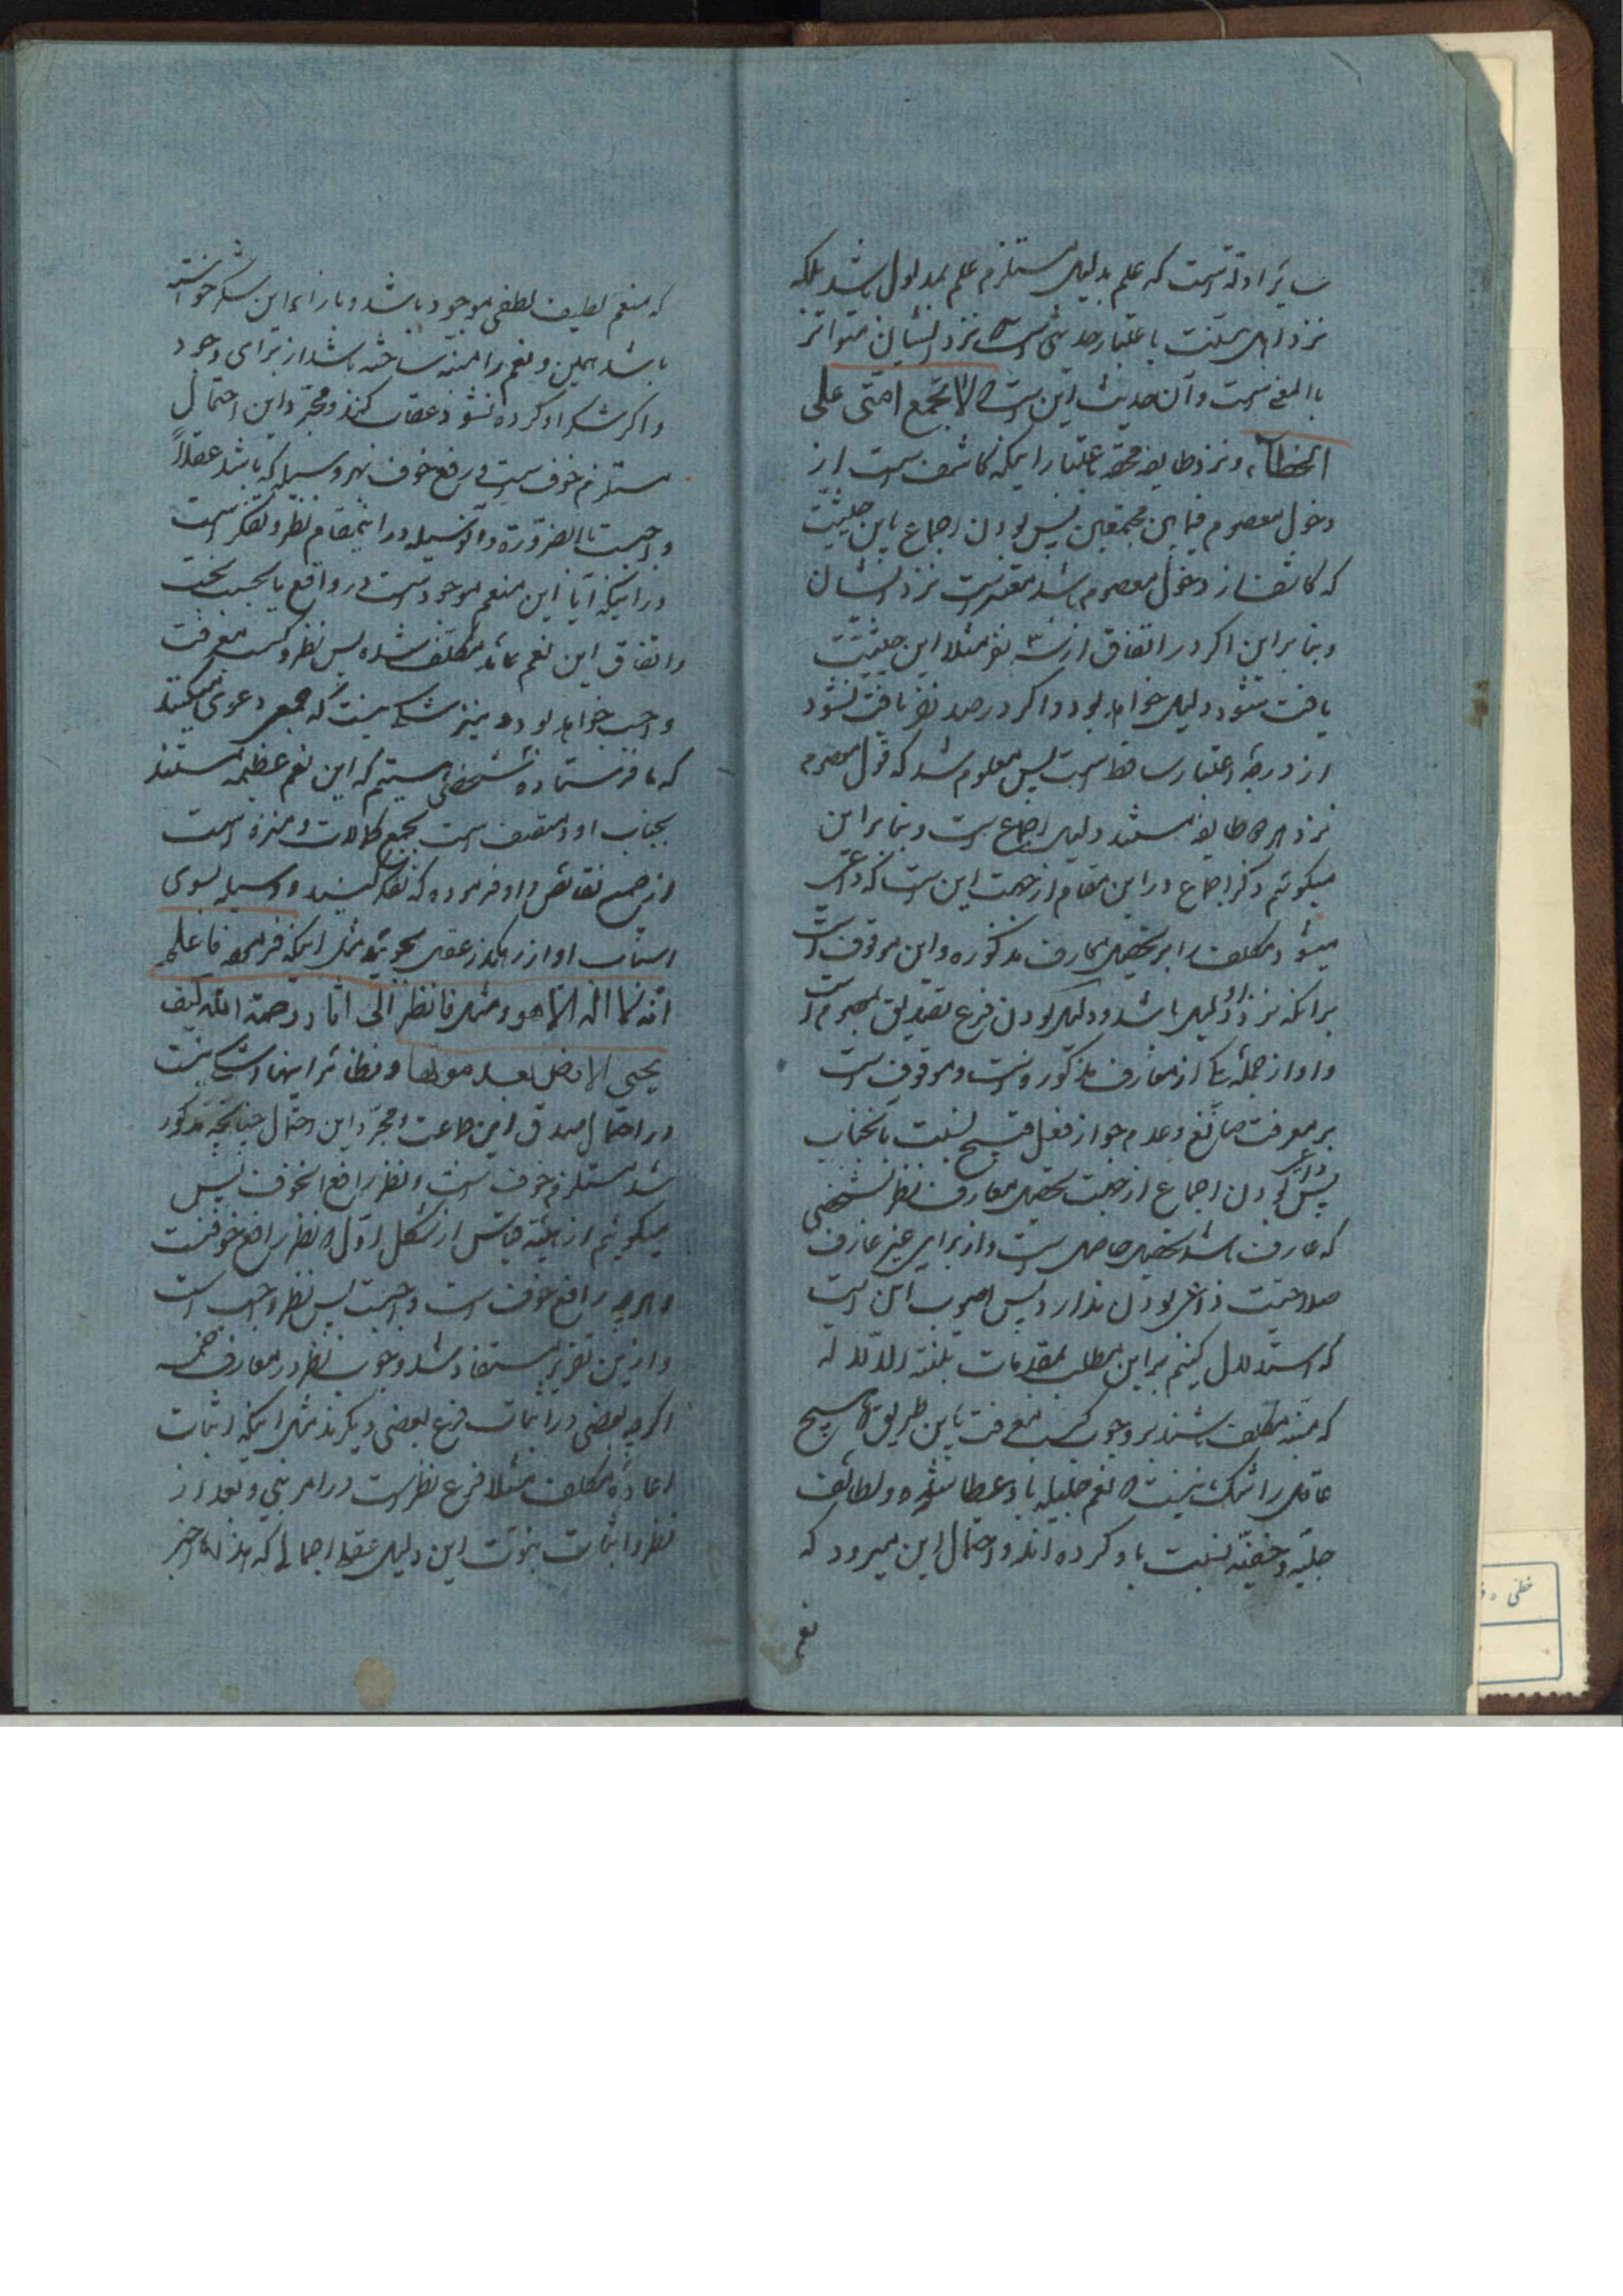 سایر ادله است که علم بدلیل مستلزم علم بمدلول باشد بلکه
نزد اهل سنت باعتبار حدیثی است که نزد ایشان متواتر
بالمعنی است و آن حدیث این است که لا تجتمع امتی علی
الخطاء و نزد طایفه محقه باعتبار اینکه کاشف است از
دخول معصوم فیما بین مجمعین پس بودن اجماع باین حیثیت
که کاشف از دخول معصوم باشد معتبر است نزد ایشان
و بنا براین اگر در اتفاق از سه نفر مثلا این حیثیت
یافت شود دلیل خواهد بود و اگر در صد نفر یافت نشود
از درجه اعتبار ساقط است پس معلوم شد که قول معصوم
نزد هر دو طایفه مستند دلیل اجماع است و بنا براین
میگوئیم ذکر اجماع در این مقام از جهت این است که داعی
میشود مکلف را بر تحصیل معارف مذکوره و این موقوف است
برانکه نزد او دلیل باشد و دلیل بودن فرع تصدیق معصوم است
و او از جمله یکی از معارف مذکوره است و موقوف است
بر معرفت صانع و عدم جواز فعل قبیح نسبت بانجناب
پس داعی بودن اجماع از جهت تحصیل معارف نظر بشخصی
که عارف باشد تحصیل حاصل است و از برای غیر عارف
صلاحیت داعی بودن ندارد پس اصوب این است
که استدلال کنیم بر این مطلب بمقدمات بلغته الدلاله
که منبه مکلف باشند بر وجوب کسب معرفت باین طریق که هیچ
عاقلی را شک نیست که نعم جلیله باو عطا شده و لطائف
جلیه و خفیه نسبت باو کرده اند و احتمال این میرود که
نعم
که منعم لطیف لطفی موجود باشد و بازاء این شکر خواسته
باشد همین و نعم را منبه ساخته باشد از برای وجود
و اگر شکر او کرده نشود عقاب کند و مجرد این احتمال
مستلزم خوف است و رفع خوف بهر وسیله که باشد عقلاً
واجبست بالضرورة و آن وسیله در اینمقام نظر و تفکر است
در اینکه آیا این منعم موجود است در واقع یا بحسب بخت
و اتفاق این نعم عائد مکلف شده پس نظر و کسب معرفت
واجب خواهد بود و نیز شک نیست که جمعی دعوی میکنند
که ما فرستاده شخصی هستیم که این نعم عظیمه مستند
بجناب او و متصف است بجمیع کمالات و منزه است
از جمیع نقائص و او فرموده که تفکر کنید و وسیله بسوی
اسباب او از رهگذر عقل بجوئید مثل اینکه فرموده فاعلم
انه لا اله الا هو و مثل فانظر الی اثار رحمة الله کیف
یحیی الارض بعد موتها و نظائر اینها و شک نیست
در احتمال صدق این جماعت و مجرد این احتمال چنانچه مذکور
شد مستلزم خوف است و نظر رافع الخوف پس
میگوئیم از هیئة قیاس از شکل اول که نظر رافع خوفست
و هرچه رافع خوف است واجبست پس نظر واجب است
و از این تقریر مستفاد شد وجوب نظر در معارف خمسه
اگرچه بعضی در اثبات فرع بعضی دیگرند مثل اینکه اثبات
اعاده مکلف مثلا فرع نظر است در امر نبی و بعد از
نظر و اثبات نبوت این دلیل عقلی اجمالی که هذا ما اخبر